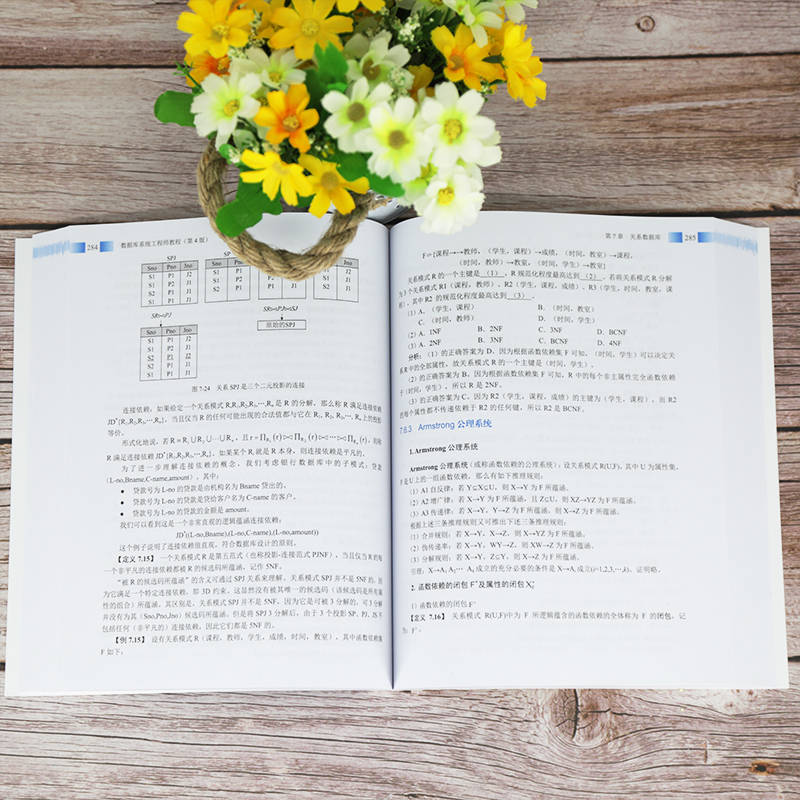 284 数据库系统工程师教程（第 4 版）
SPJ SP
Sno Pno Jno Sno Pno Jno
S1 P1 J2 S1 P1 J2
S1 P2 J1 S1 P2 J1
S2 P1 J1 S2 P1 J1
S1 P1 J1
SP⋈PJ SP⋈PJ⋈SJ
Sno Pno Jno 原始的SPJ
S1 P1 J2
S1 P2 J1
S2 P1 J1
S1 P1 J1
图 7-24 关系 SPJ 是三个二元投影的连接
连接依赖：如果给定一个关系模式 R,R₁,R₂,R₃,…,Rₙ是 R 的分解，那么称 R 满足连接依赖
JD*{R₁,R₂,R₃,…,Rₙ}，当且仅当 R 的任何可能出现的合法值都与它在 R₁, R₂, R₃,…, Rₙ上的投影
等价。
形式化地说，若 R = R₁ ∪ R₂ ∪…∪ Rₙ，且
R 满足连接依赖 JD*{R₁,R₂,R₃,…,Rₙ}。如果某个 Rᵢ就是 R 本身，则连接依赖是平凡的。
为了进一步理解连接依赖的概念，我们考虑银行数据库中的子模式：贷款
(L-no,Bname,C-name,amount)，其中：
● 贷款号为 L-no 的贷款是由机构名为 Bname 贷出的。
● 贷款号为 L-no 的贷款是贷给客户名为 C-name 的客户。
● 贷款号为 L-no 的贷款的金额是 amount。
我们可以看到这是一个非常直观的逻辑蕴涵连接依赖：
JD*((L-no,Bname),(L-no,C-name),(L-no,amount))
这个例子说明了连接依赖很直观，符合数据库设计的原则。
【定义 7.15】 一个关系模式 R 是第五范式（也称投影-连接范式 PJNF），当且仅当 R 的每
一个非平凡的连接依赖都被 R 的候选码所蕴涵，记作 5NF。
“被 R 的候选码所蕴涵”的含义可通过 SPJ 关系来理解。关系模式 SPJ 并不是 5NF 的，因
为它满足一个特定连接依赖，即 3D 约束。这显然没有被其唯一的候选码（该候选码是所有属
性的组合）所蕴涵。其区别是，关系模式 SPJ 并不是 5NF，因为它是可被 3 分解的。可 3 分解
并没有为其（Sno,Pno,Jno）候选码所蕴涵。但是将 SPJ 3 分解后，由于 3 个投影 SP, PJ, JS 不
包括任何（非平凡的）连接依赖，因此它们都是 5NF 的。
【例 7.15】 设有关系模式 R（课程，教师，学生，成绩，时间，教室），其中函数依赖集
F 如下：
第 7 章 关系数据库 285
F={课程→→教师，（学生，课程）→成绩，（时间，教室）→课程，
（时间，教师）→教室，（时间，学生）→教室}
关系模式 R 的一个主键是 （1） ，R 规范化程度最高达到 （2） 。若将关系模式 R 分解
为 3 个关系模式 R1（课程，教师）、R2（学生，课程，成绩）、R3（学生，时间，教室，课
程），其中 R2 的规范化程度最高达到 （3） 。
（1）A. （学生，课程） B. （时间，教室）
C. （时间，教师） D. （时间，学生）
（2）A. 1NF B. 2NF C. 3NF D. BCNF
（3）A. 2NF B. 3NF C. BCNF D. 4NF
分析：（1）的正确答案为 D。因为根据函数依赖集 F 可知，（时间，学生）可以决定关
系 R 中的全部属性，故关系模式 R 的一个主键是（时间，学生）。
（2）的正确答案为 B。因为根据函数依赖集 F 可知，R 中的每个非主属性完全函数依赖
于（时间，学生），所以 R 是 2NF。
（3）的正确答案为 C。因为 R2（学生，课程，成绩）的主键为（学生，课程），而 R2
的每个属性都不传递依赖于 R2 的任何键，所以 R2 是 BCNF。
7.6.3 Armstrong 公理系统
1. Armstrong 公理系统
Armstrong 公理系统（或称函数依赖的公理系统）：设关系模式 R(U,F)，其中 U 为属性集，
F 是 U 上的一组函数依赖，那么有如下推理规则：
（1）A1 自反律：若 Y⊆X⊆U，则 X→Y 为 F 所蕴涵。
（2）A2 增广律：若 X→Y 为 F 所蕴涵，且 Z⊆U，则 XZ→YZ 为 F 所蕴涵。
（3）A3 传递律：若 X→Y，Y→Z 为 F 所蕴涵，则 X→Z 为 F 所蕴涵。
根据上述三条推理规则又可推出下述三条推理规则：
（1）合并规则：若 X→Y，X→Z，则 X→YZ 为 F 所蕴涵。
（2）伪传递率：若 X→Y，WY→Z，则 XW→Z 为 F 所蕴涵。
（3）分解规则：若 X→Y，Z⊆Y，则 X→Z 为 F 所蕴涵。
引理：X→A₁A₂…Aₖ 成立的充分必要的条件是 X→Aᵢ 成立(i=1,2,3,…,k)。证明略。
2. 函数依赖的闭包 F⁺及属性的闭包 X_F⁺
1）函数依赖的闭包 F⁺
【定义 7.16】 关系模式 R(U,F)中为 F 所逻辑蕴含的函数依赖的全体称为 F 的闭包，记
为: F⁺。